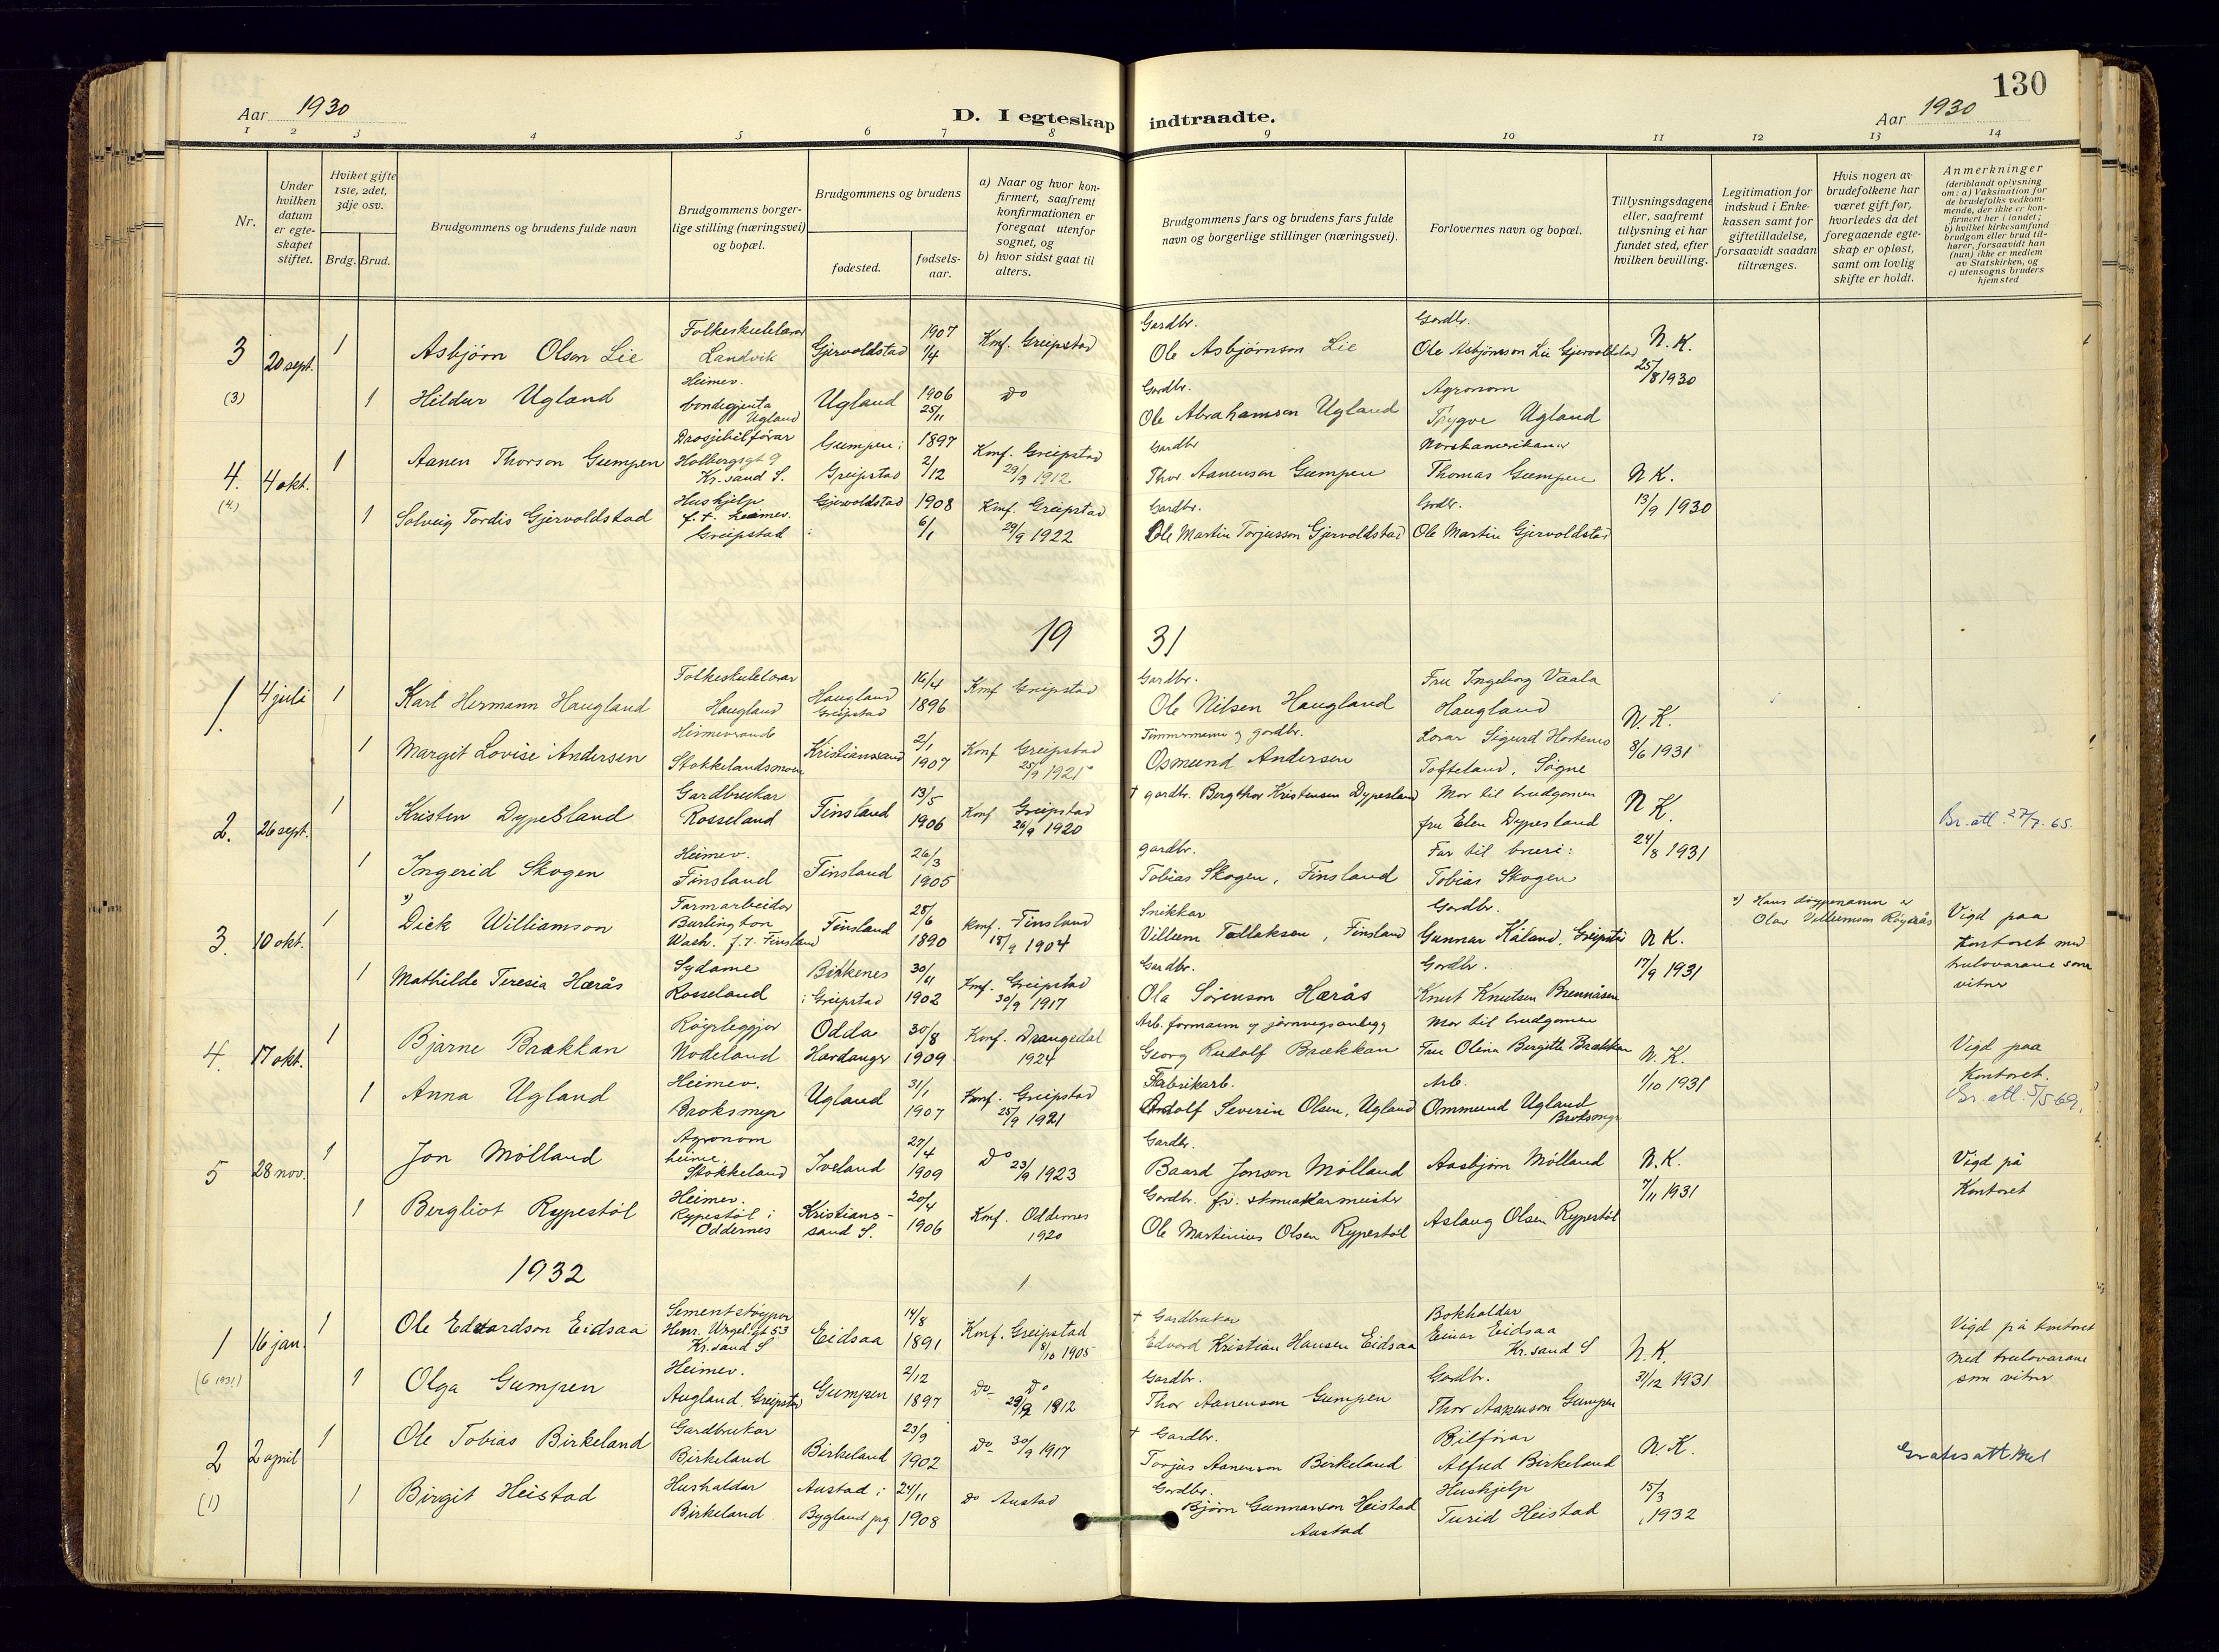 130
Aar 1930
D. I egteskap indtraadte.
Aar 1930
1 2 3 4 5 6 7 8 9 10 11 12 13 14
Nr.
Under hvilken datum er egteskapet stiftet.
Hviket gifte 1ste, 2det, 3dje osv.
Brdg. Brud.
Brudgommens og brudens fulde navn
Brudgommens borgerlige stilling (næringsvei) og bopæl.
Brudgommens og brudens
fødested.
fødselsaar.
a) Naar og hvor konfirmert, saafremt konfirmationen er foregaat utenfor sognet, og
b) hvor sidst gaat til alters.
Brudgommens fars og brudens fars fulde navn og borgerlige stillinger (næringsvei).
Forlovernes navn og bopæl.
Tillysningsdagene eller, saafremt tillysning ei har fundet sted, efter hvilken bevilling.
Legitimation for indskud i Enkekassen samt for giftetilladelse, forsaavidt saadan tiltrænges.
Hvis nogen av brudefolkene har været gift før, hvorledes da det foregaaende egteskap er opløst, samt om lovlig skifte er holdt.
Anmerkninger (deriblandt oplysning om: a) Vaksination for de brudefolks vedkommende, der ikke er konfirmert her i landet; b) hvilket kirkesamfund brudgom eller brud tilhører, forsaavidt han (hun) ikke er medlem av Statskirken, og c) utensogns bruders hjemsted
3 20 sept. 1 Asbjørn Olson Lie Folkeskulelærar Landvik Gjervoldstad 1907 1/4 Konf. Greipstad Gardbr. Ole Asbjørnson Lie Gardbr. Ole Asbjørnson Lie Gjervoldstad N. K. 25/8 1930
(3) 1 Hildur Ugland Heimev. bondegjenta Ugland Ugland 1906 25/11 Do Gardbr. Ole Abrahamson Ugland Agronom Trygve Ugland
4. 4 okt. 1 Aanen Thorson Gumpen Drosjebilførar Holbergsgt 9 Kr.sand S. Gumpen i Greipstad 1897 2/12 Konf. Greipstad 29/9 1912 Gardbr Thor Aanenson Gumpen Norskamerikaner Thomas Gumpen N K.
(4.) 1 Solveig Tordis Gjervoldstad Hushjelp f. t. heimev. Greipstad Gjervoldstad 1908 6/1 Konf. Greipstad 29/9 1922 Gardbr. Ole Martin Torjusson Gjervoldstad Gardbr. Ole Martin Gjervoldstad 13/9 1930
19 31
1. 4 juli 1 Karl Hermann Haugland Folkeskulelærar Haugland Haugland Greipstad 16/4 1896 Konf Greipstad Gardbr. Ole Nilsen Haugland Fru Ingeborg Vaala Haugland N. K.
1 Margit Lovise Andersen Heimeverande Stokkelandsmoen Kristianssand 2/1 1907 Konf Greipstad 25/9 1921 Tømmermann og gardbr. Osmund Andersen Lærar Sigurd Hortenes Tofteland, Søgne 8/6 1931
2. 26 sept. 1 Kristen Dypesland Gardbrukar Rosseland Finsland 13/5 1906 Konf Greipstad 26/9 1920 † gardbr. Bergthor Kristensen Dypesland Mor til brudgomen fru Elen Dypesland N K. Br. att. 27/7. 65.
1 Ingerid Skogen Heimev. Finsland Finsland 26/3 1905 gardbr. Tobias Skogen, Finsland Far til bruri: Tobias Skogen 24/8 1931
3. 10 okt. 1 Dick Williamson Farmarbeider Burlington Wash. f. t. Finsland Finsland 28/6 1890 Konf. Finsland 18/9 1904 Snikkar Villum Tallaksen, Finsland Gardbr. Gunnar Kåland, Greipstad N K. Hans døypenamn er Olav Villumsen Røyrås Vigd paa Kontoret med trulovarane som vitner
1 Mathilde Teresia Hærås Sydame Rosseland Birkenes i Greipstad 30/11 1902 Konf. Greipstad 30/9 1917 Gardbr. Ola Sørenson Hærås Gardbr. Knut Knutsen Brennåsen 17/9 1931
4. 17 okt. 1 Bjarne Brækkan Røyrleggjar Nodeland Odda Hardanger 30/8 1909 Konf. Drangedal 1924 Arb. formann v jarnvegsanlegg Georg Rudolf Brækkan Mor til brudgomen Fru Olina Bergitte Brækkan N. K. Vigd paa Kontoret.
1 Anna Ugland Heimev. Broksmyr Ugland 31/1 1907 Konf. Greipstad 25/9 1921 Fabrikarb. Andolf Severin Olsen, Ugland Arb. Ommund Ugland Broksmyr 1/10 1931 Br. att. 5/5 69.
5 28 nov. 1 Jon Mølland Agronom heime Stokkeland Iveland 27/4 1909 Do 23/9 1923 Gardbr. Baard Jonson Mølland Aasbjørn Mølland N. K. Vigd på Kontoret
1 Bergliot Rypestøl Heimev. Rypestøl i Oddernes Kristianssand S. 20/4 1906 Konf. Oddernes 1920 Gardbr. fv. skomakarmeister Ole Martinius Olsen Rypestøl Aslaug Olsen Rypestøl 7/11 1931
1932
1 16 jan. 1 Ole Edvardson Eidsaa Sementstøyper Henr. Wergel. gt 53 Kr.sand S Eidsaa 14/8 1891 Konf. Greipstad 8/10 1905 † Gardbrukar Edvard Kristian Hansen Eidsaa Bokhaldar Einar Eidsaa Kr.sand S N. K. Vigd på kontoret med trulovarane som vitner
(6 1931) 1 Olga Gumpen Heimev. Augland, Greipstad Gumpen 2/12 1897 Do Do 29/9 1912 Gardbr. Thor Aanenson Gumpen Gardbr. Thor Aanenson Gumpen 31/12 1931
2 2 april 1 Ole Tobias Birkeland Gardbrukar Birkeland Birkeland 23/9 1902 Do 30/9 1917 † Gardbr. Torjus Aanenson Birkeland Bilførar Alfred Birkeland N. K. Gratis att
(1) 1 Birgit Heistad Hushaldar Birkeland Austad i Bygland pg 24/11 1908 Do Austad Gardbr. Bjørn Gunnarson Heistad Austad Hushjelp Turid Heistad 15/3 1932